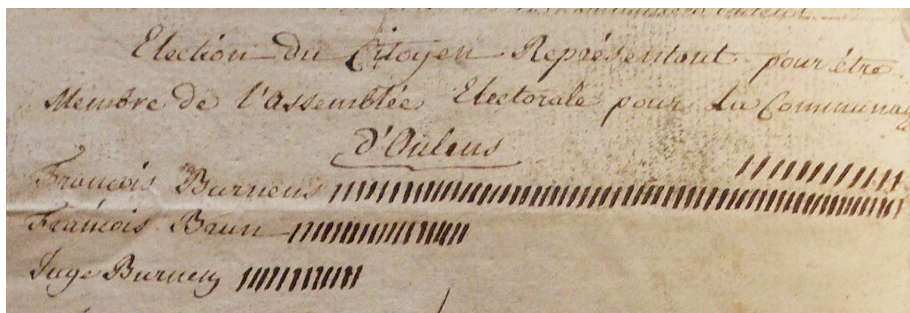 Election du Citoyen Représentant pour être
Membre de l'assemblée Electorale pour La Communau
D'Oulens
François Burnens
François Brun
Juge Burnens